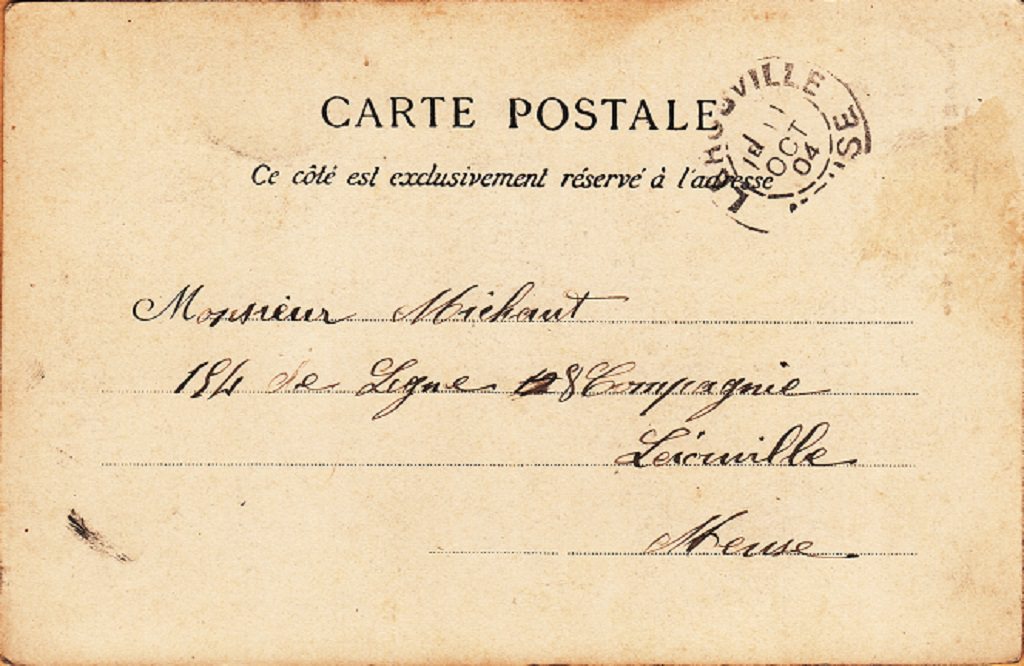 CARTE POSTALE
Ce côté est exclusivement réservé à l'adresse
LEROUVILLE
11
OCT
04
Monsieur Michaut
154 de Ligne 8 Compagnie
Lérouville
Meuse